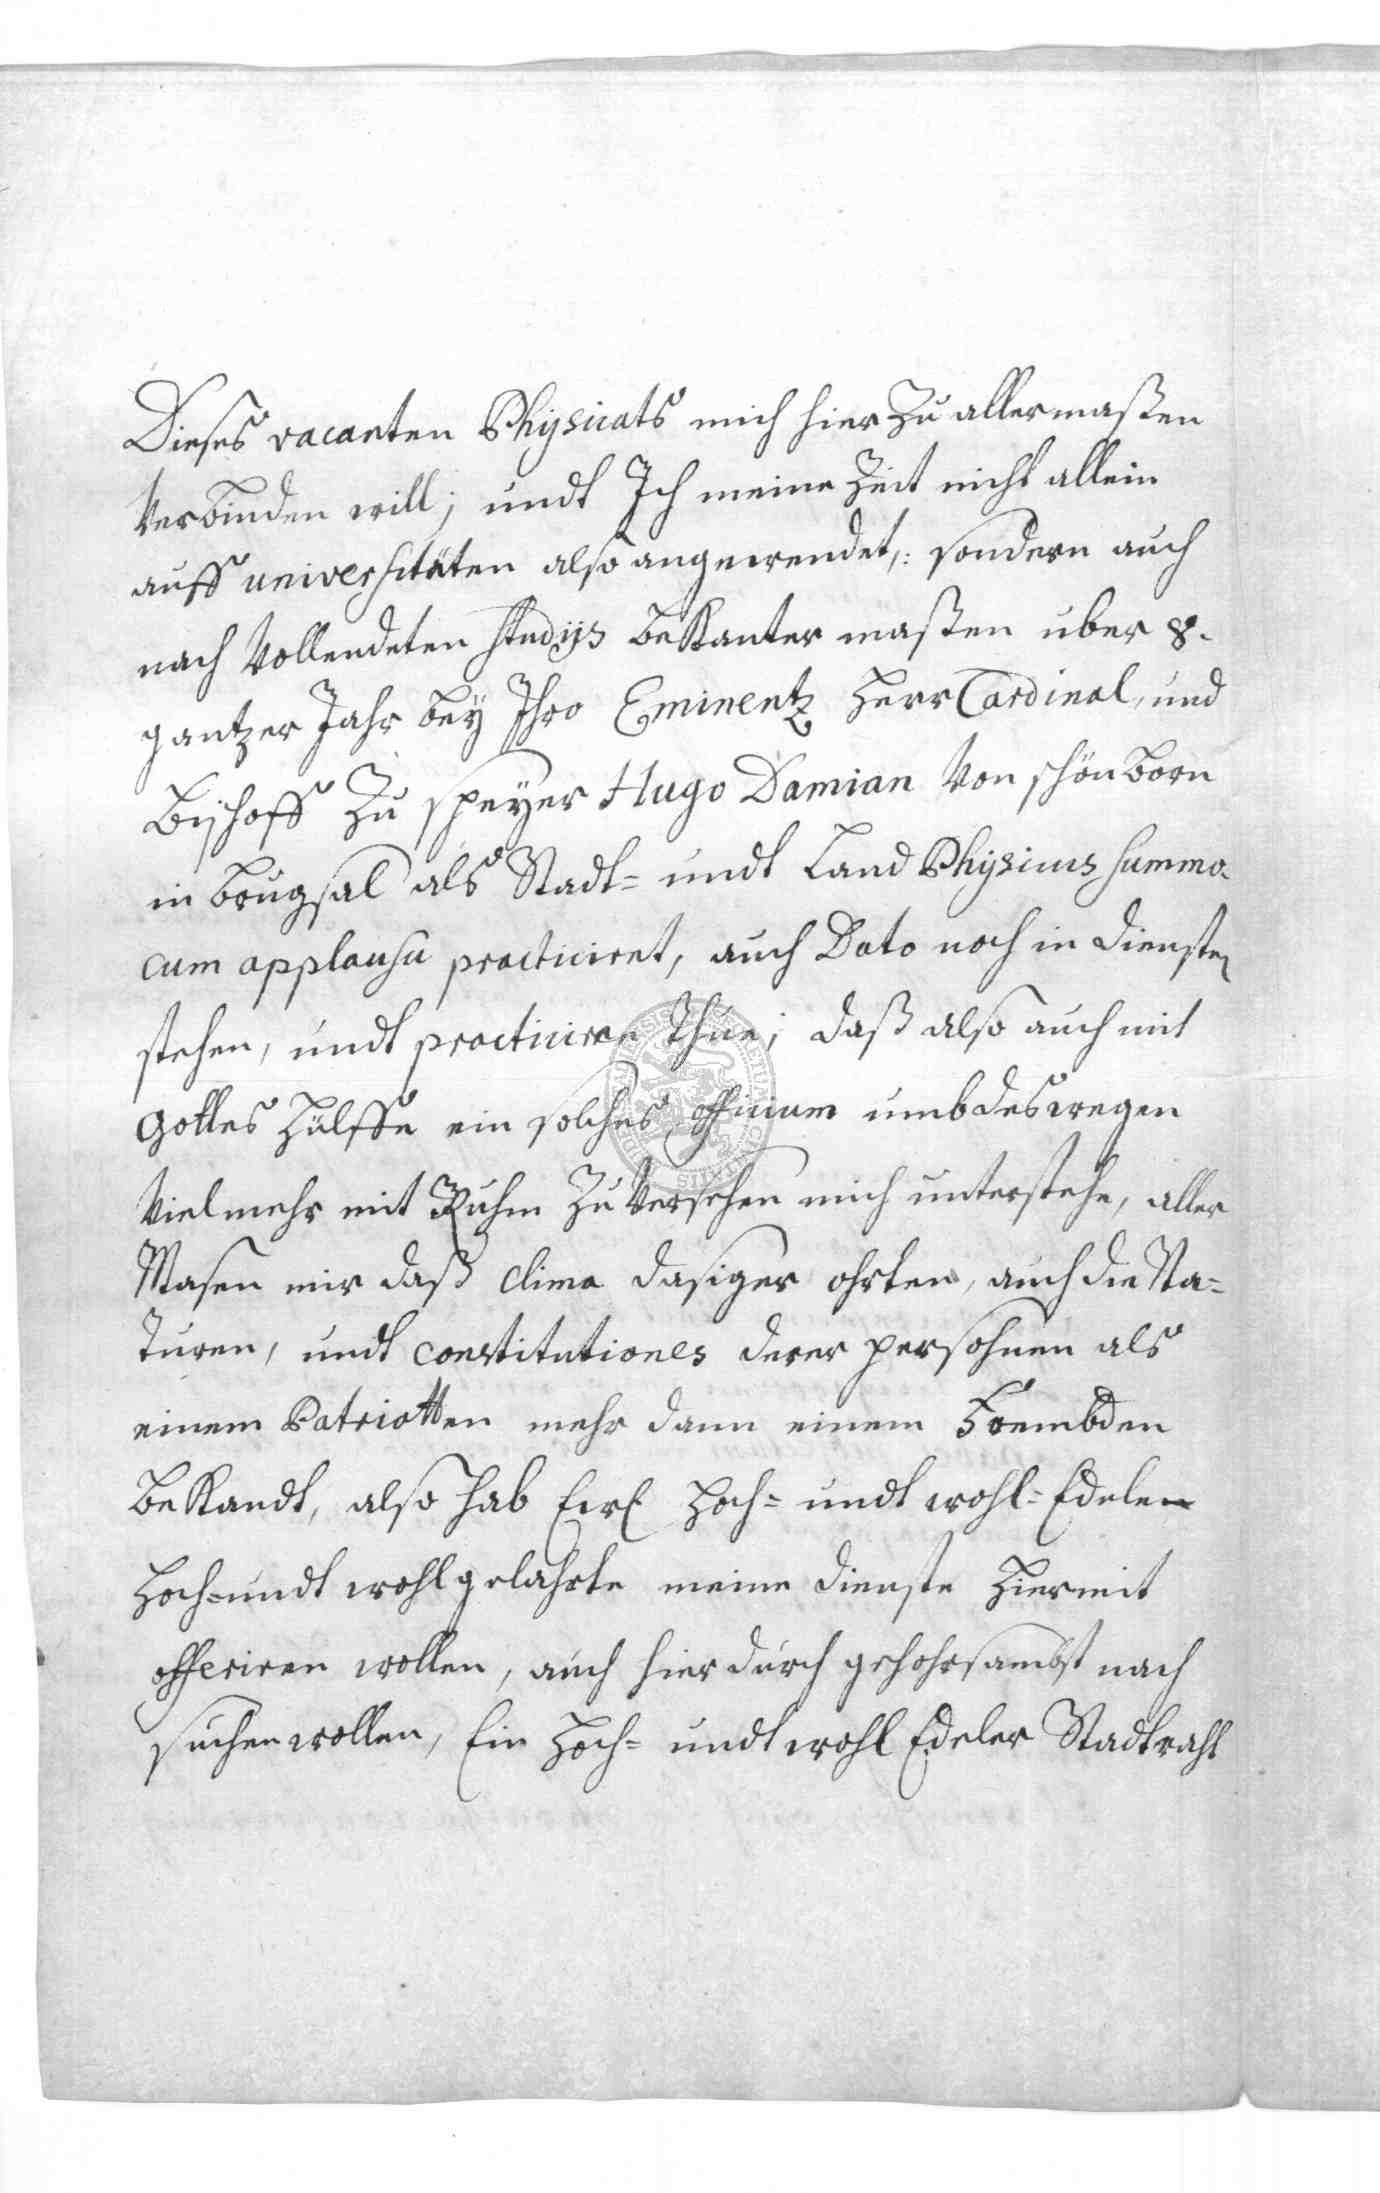 Dieses vacanten Physicats mich hier Zu allermaßen
Verbinden will; undt Ich meine Zeit nicht allein
auff universitäten also angewendet,: sondern auch
nach Vollendeten studijs beKanter maßen uber 8.
gantzer Jahr beÿ Ihro Eminentz Herr Cardinal, und
Bischoff Zu speÿer Hugo Damian Von schönborn
in brugsal als Stadt= undt Land Physicus summo.
cum applausu practiciret, auch Dato noch in diensten
stehen, undt practicire Thue; daß also auch mit
Gottes Hülffe ein solches officium umb deswegen
Vielmehr mit Ruhm Zu Versehen mich unterstehe, aller
Masen mir daß clima dasiger ohrten, auch die Na=
Turen, undt constitutiones derer persohnen als
einem Patriotten mehr dann einem Frembden
beKandt, also hab Ewl Hoch= undt wohl=Edelen
Hoch=undt wohlgelahrte meine dienste Hiermit
offeriren wollen, auch hier durch gehohrsambst nach
suchen wollen, Ein Hoch= undt wohl Edeler Stadtraht